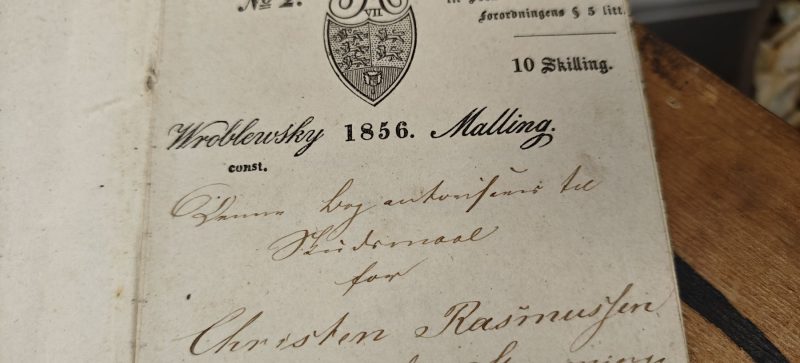 No 2.
VII
Forordningens § 5 litt.
10 Skilling.
Wroblewsky 1856. Malling.
const.
Denne Bog autoriseres til
Skudsmaal
for
Christen Rasmussen